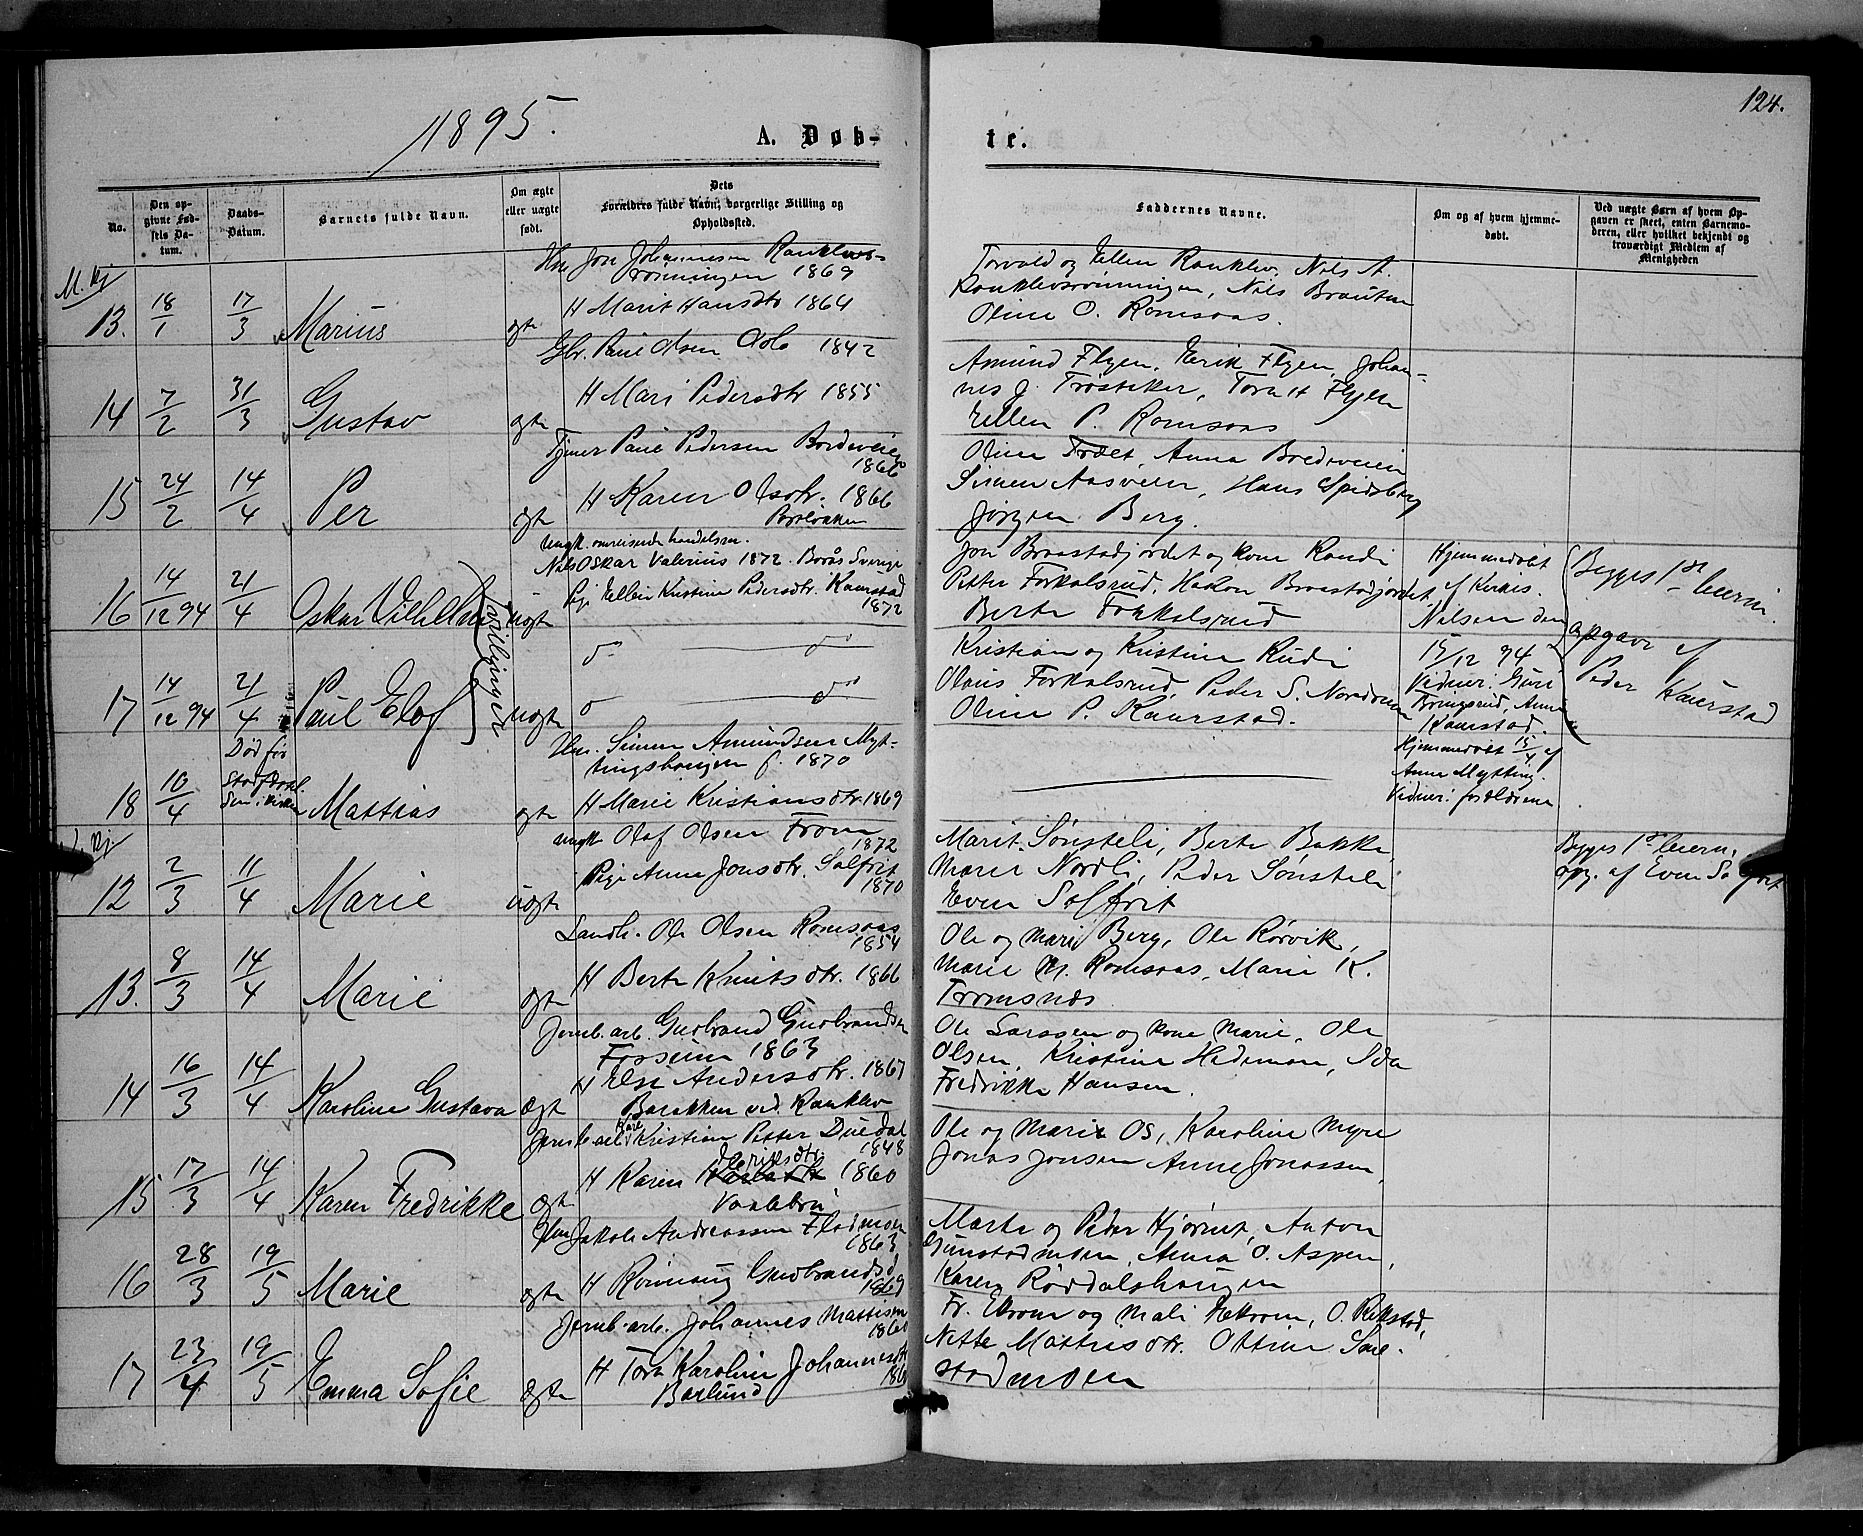 1895.
124.
A. Døb-
te.
No.
Den op-
givne Fød-
sels Da-
tum.
Daabs-
Datum.
Barnets fulde Navn.
Om ægte
eller uægte
født.
Dets
Forældres fulde Navn, borgerlige Stilling og
Opholdssted.
Faddernes Navne.
Om og af hvem hjemme-
døbt.
Ved uægte Børn af hvem Op-
gaven er skeet, enten Barnemo-
deren, eller hvilket bekjendt og
troværdigt Medlem af
Menigheden
13. 18/1 17/3 Marius ægte
Jon Johannesen Ranklevs-
rønningen 1869
H Marit Hansdtr 1864
Torvald og Ellen Ranklev, Nils A.
Ranklevsrønningen, Nils Brauten
Oline O. Romsaas.
14 7/2 31/3 Gustav ægte
Gbr. Paul Olsen 1842
H Mari Pedersdtr 1855
Amund Flyen, Erik Flyen, Johan-
nes J. Trøstaker, Tora H Flyen
Ellen P. Romsaas
15 24/2 14/4 Per ægte
Tjener Paul Pedersen
1866
H Karen Olsdtr. 1866
Oline Anna Bredeveien
Simen Aasveen, Hans Spidsberg
Jørgen Berg.
16 14/12 94 21/4 Oskar Vilhelm uægte
tvillinger
Ungk. omreisende handelsm.
Nils Oskar Valerius 1872. Borås Sverige
Pige Ellen Kristine Pedersdtr. Kaurstad
1872
Jon Braastadjordet og kone Randi
Petter Forkalsrud, Hakon Braastadjordet,
Berte Forkalsrud
Hjemmedøbt
af Kirkis.
Nilsen den
15/12 94
Begges 1ste leierm.
opgave af
Peder Kaurstad
17 14/12 94 21/4 Paul Elof uægte
Kristian og Kristine Rudi
Olaus Forkalsrud, Peder S.
Oline P. Kaurstad.
Vidner: Guri
Anne
Kaurstad.
18 10/4 Død før
Mattias ægte
Simen Amundsen Myt-
tingshaugen f. 1870
H Marie Kristiansdtr. 1869
Hjemmedøbt 15/4 af
Anne Mytting.
Vidner: forældrene
12 2/3 11/4 Marie uægte
ungk. Olof Olsen From
1872
Pige Anne Jonsdtr. Solfrit
1870
Marit Sønsteli, Berte Bakke,
Marie Nordli, Peder Sønsteli
Even Solfrit
Begges 1ste leierm.
opg. af Even
13. 8/3 14/4 Marie ægte
Landh. Ole Olsen Romsaas
1854
H Berte Knutsdtr. 1866
Ole og Mari Berg, Ole Rørvik,
Marie M. Romsaas, Marie K.
Tromsnæs
14 16/3 14/4 Karoline Gustava ægte
Jernb. arb. Gudbrand Gudbrandsen
Fosseim 1863
H Else Andersdtr. 1867
Barakken ved Ranklev
Ole Larssen og kone Marie, Ole
Olsen, Kristine Hedemoen, Ida
Fredrikke Hansen.
15 17/3 14/4 Karen Fredrikke ægte
Jernb. arb. Karl Kristian Petter Duedal
1848
H Karen 1860
Vaalebru
Ole og Marie Os, Karoline Myre
Jonas Jonsen Anne Jonassen
16 28/3 19/5 Marie ægte
Jakob Andreassen Flatmoen
1863
H Rønnaug Gudbrandsd
1869
Marte og Peder Hjørnet, Anton
Anna O. Aspen,
Karen Røddalshaugen
17 23/4 19/5 Emma Sofie ægte
Jernb. arb. Johannes Mattisen
1860
H Tora Karoline Johannesdtr
Barlund
Fr. Ekrem og Mali O. Rikstad,
Nette Mattisdtr. Ottine Sme-
stadmoen